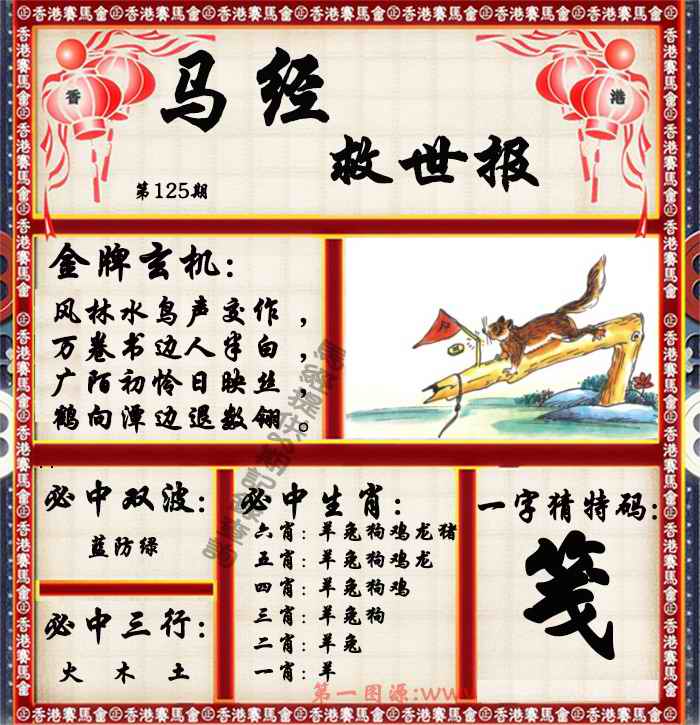 香港賽馬會
香 港
马经
救世报
第125期
金牌玄机:
风林水鸟声交作，
万卷书边人半白，
广陌初怜日映丝，
鹤向潭边退数翎。
必中双波:
蓝防绿
必中三行:
火 木 土
必中生肖:
六肖:羊兔狗鸡龙猪
五肖:羊兔狗鸡龙
四肖:羊兔狗鸡
三肖:羊兔狗
二肖:羊兔
一肖:羊
一字猜特码:
笺
第一图源:www